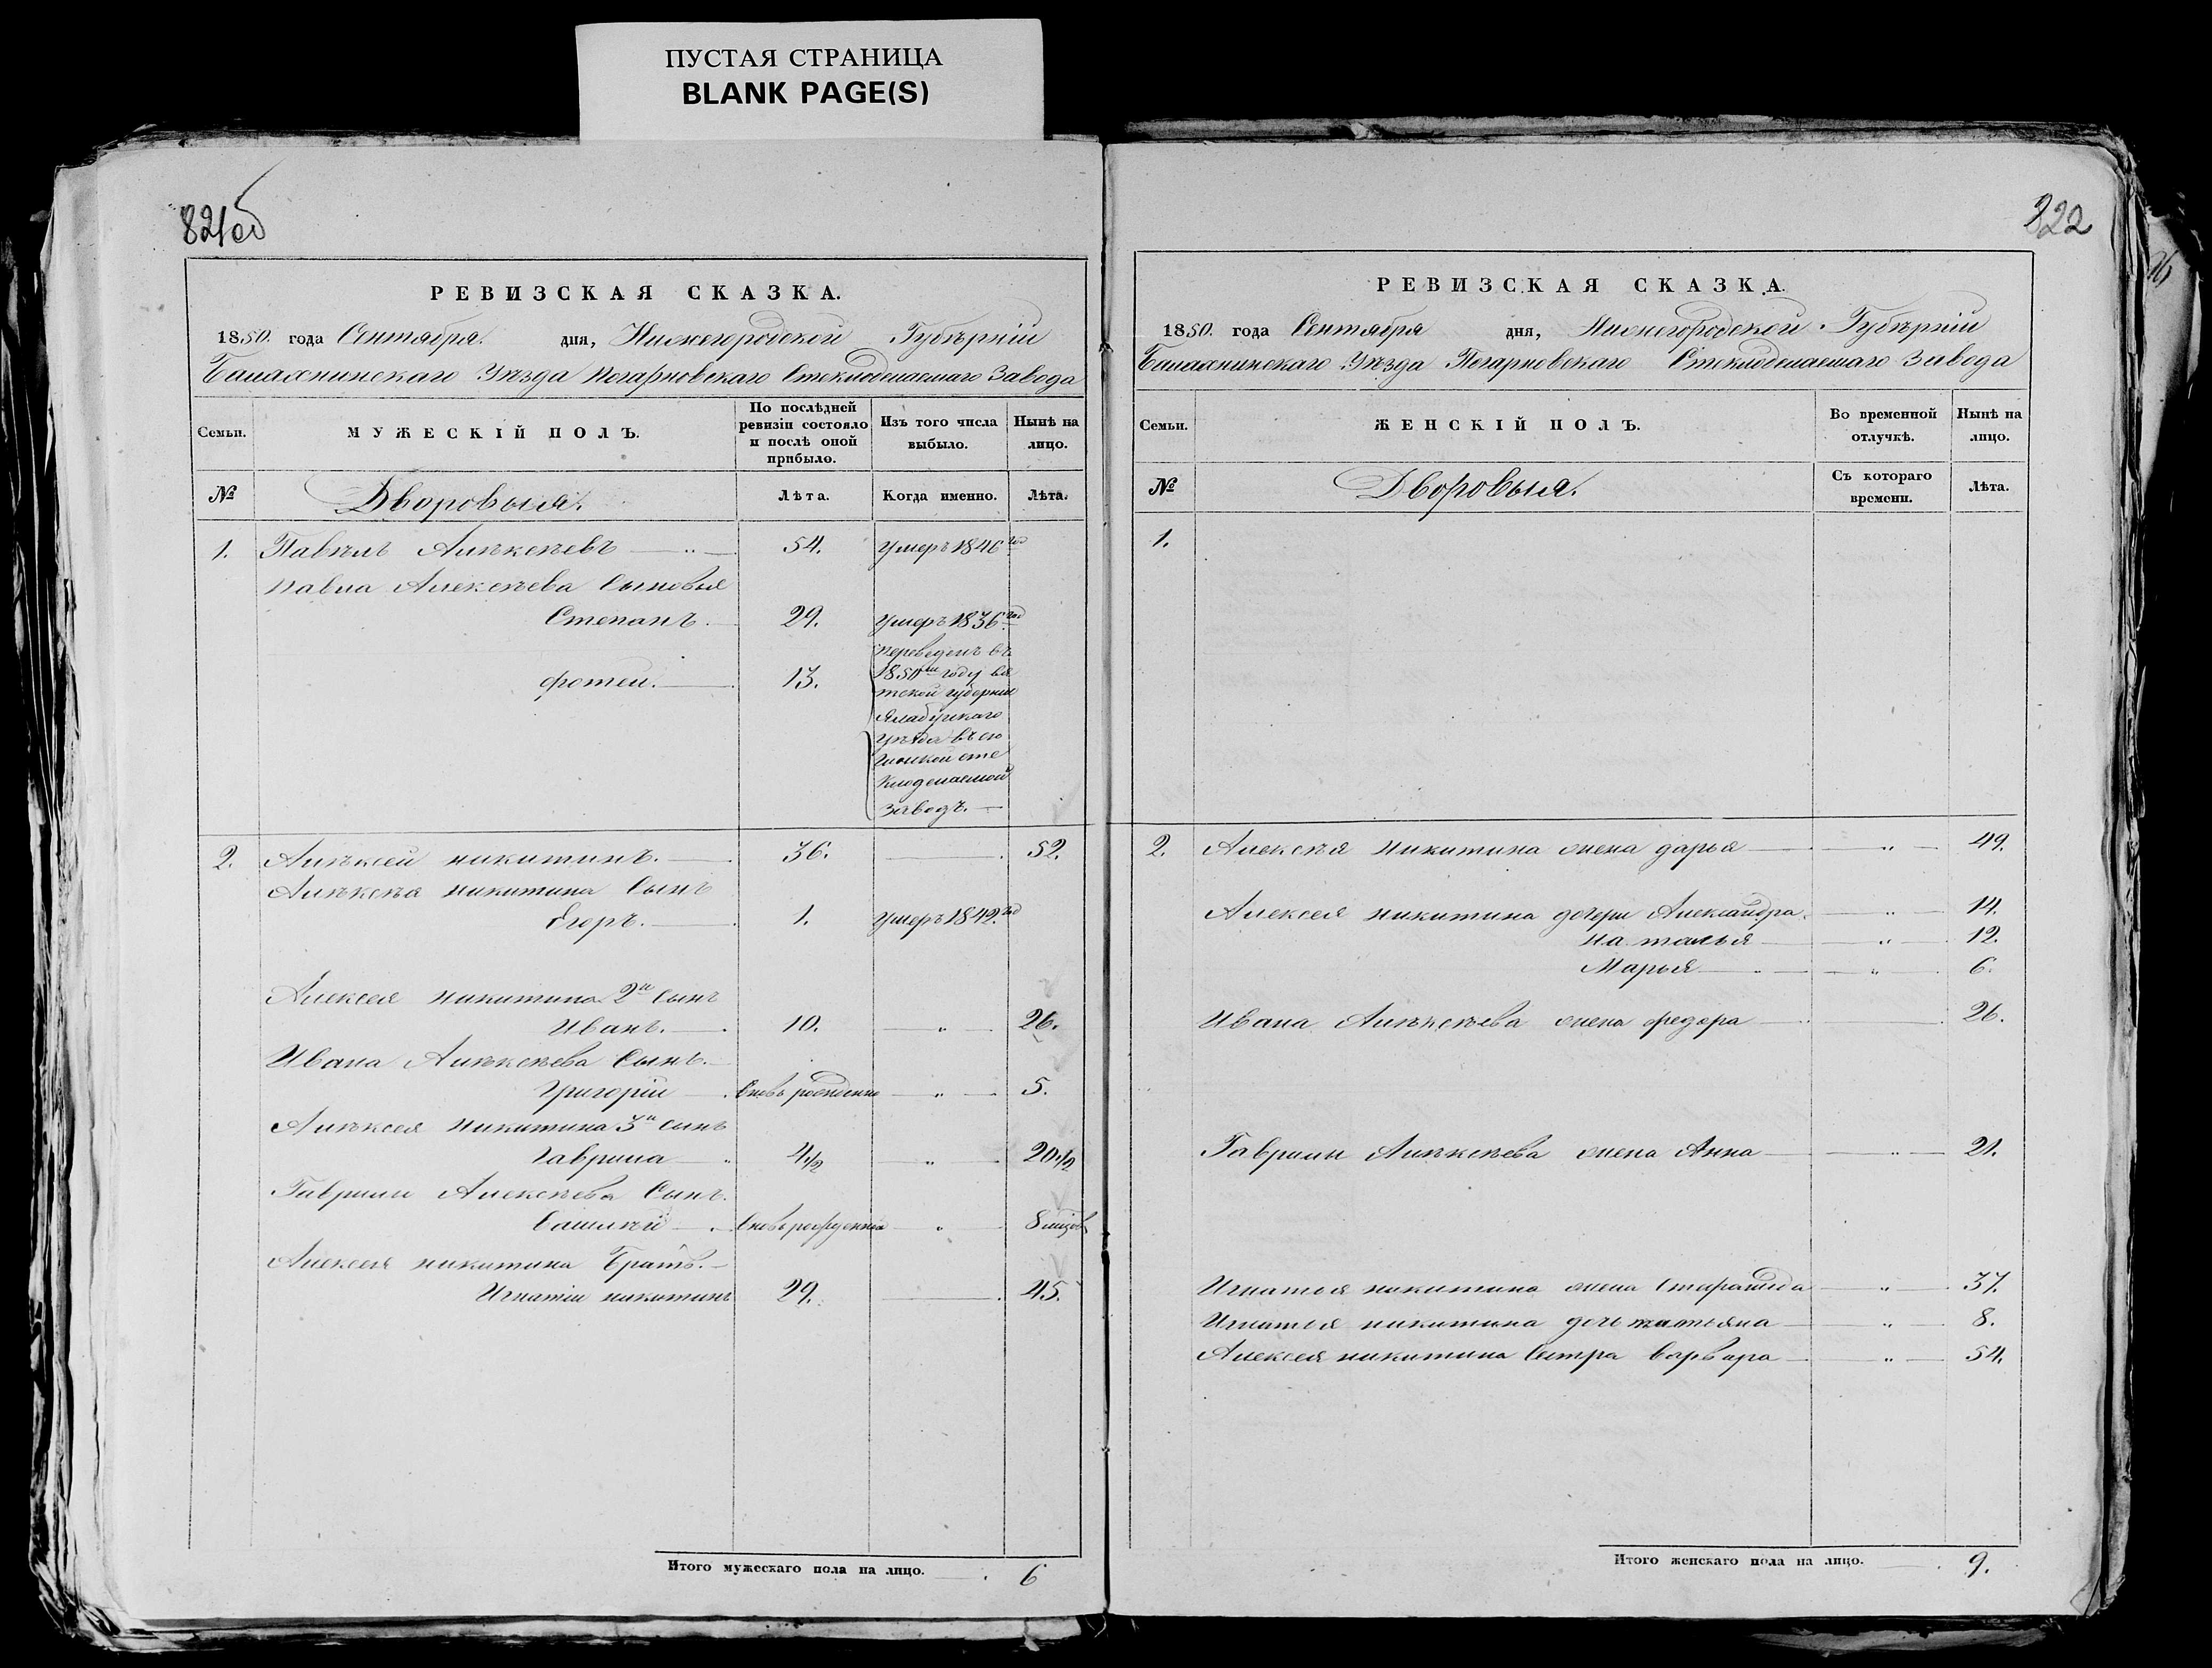 ПУСТАЯ СТРАНИЦА
BLANK PAGE(S)
821об
РЕВИЗСКАЯ СКАЗКА.
1850. года Сентября. дня, Нижегородской Губѣрніи
Балахнинскаго Уѣзда Погарновскаго Стеклоделаемаго Завода
Семьи.
МУЖЕСКІЙ ПОЛЪ.
По послѣдней ревизіи состояло и послѣ оной прибыло.
Изъ того числа выбыло.
Нынѣ на лицо.
№
Дворовыя.
Лѣта.
Когда именно.
Лѣта.
1. Павѣлъ Алѣксѣевъ 54. Умеръ 1846 год
Павла Алексѣева Сыновья
Степанъ. 29. Умеръ 1836 год
Фотей. 13. Переведенъ въ
1850м году вя
тской губернии
Ялабужскаго
Уѣзда въ сю
гинской сте
клоделаемой
заводъ.
2. Алѣксей никитинъ. 36. 52.
Алѣксѣя никитина Сынъ
Егоръ. 1. Умеръ 1842. год
Алексея никитина 2й сынъ
Иванъ. 10. „ 26.
Ивана Алѣксѣева Сынъ.
Григорій вновь рожденно „ 5.
Алѣксея никитина 3й сынъ
Гаврила 4 1/2 „ 20 1/2
Гаврилы Алексѣева Сынъ.
Васильей вновь рожденна „ 8 мцов
Алексея никитина Братъ.
Игнатій никитинъ 29. 45.
Итого мужескаго пола на лицо. 6
822
РЕВИЗСКАЯ СКАЗКА.
1850. года Сентября дня, Нижегородской Губѣрніи
Балахнинскаго Уѣзда Погарновскаго Стеклоделаемаго Завода
Семьи.
ЖЕНСКІЙ ПОЛЪ.
Во временной отлучкѣ.
Нынѣ на лицо.
№
Дворовыя.
Съ котораго времени.
Лѣта.
1.
2. Алексѣя никитина жена дарья „ 49.
Алексея никитина дочери Александра. „ 14.
Наталья „ 12.
Марья „ 6.
Ивана Алѣксѣева жена федора 26.
Гаврилы Алѣксѣева жена Анна „ 21.
Игнатья никитина жена Стафанида „ 37.
Игнатья никитина дочь татьяна „ 8.
Алексея никитина Сестра варвара „ 54.
Итого женскаго пола на лицо. 9.